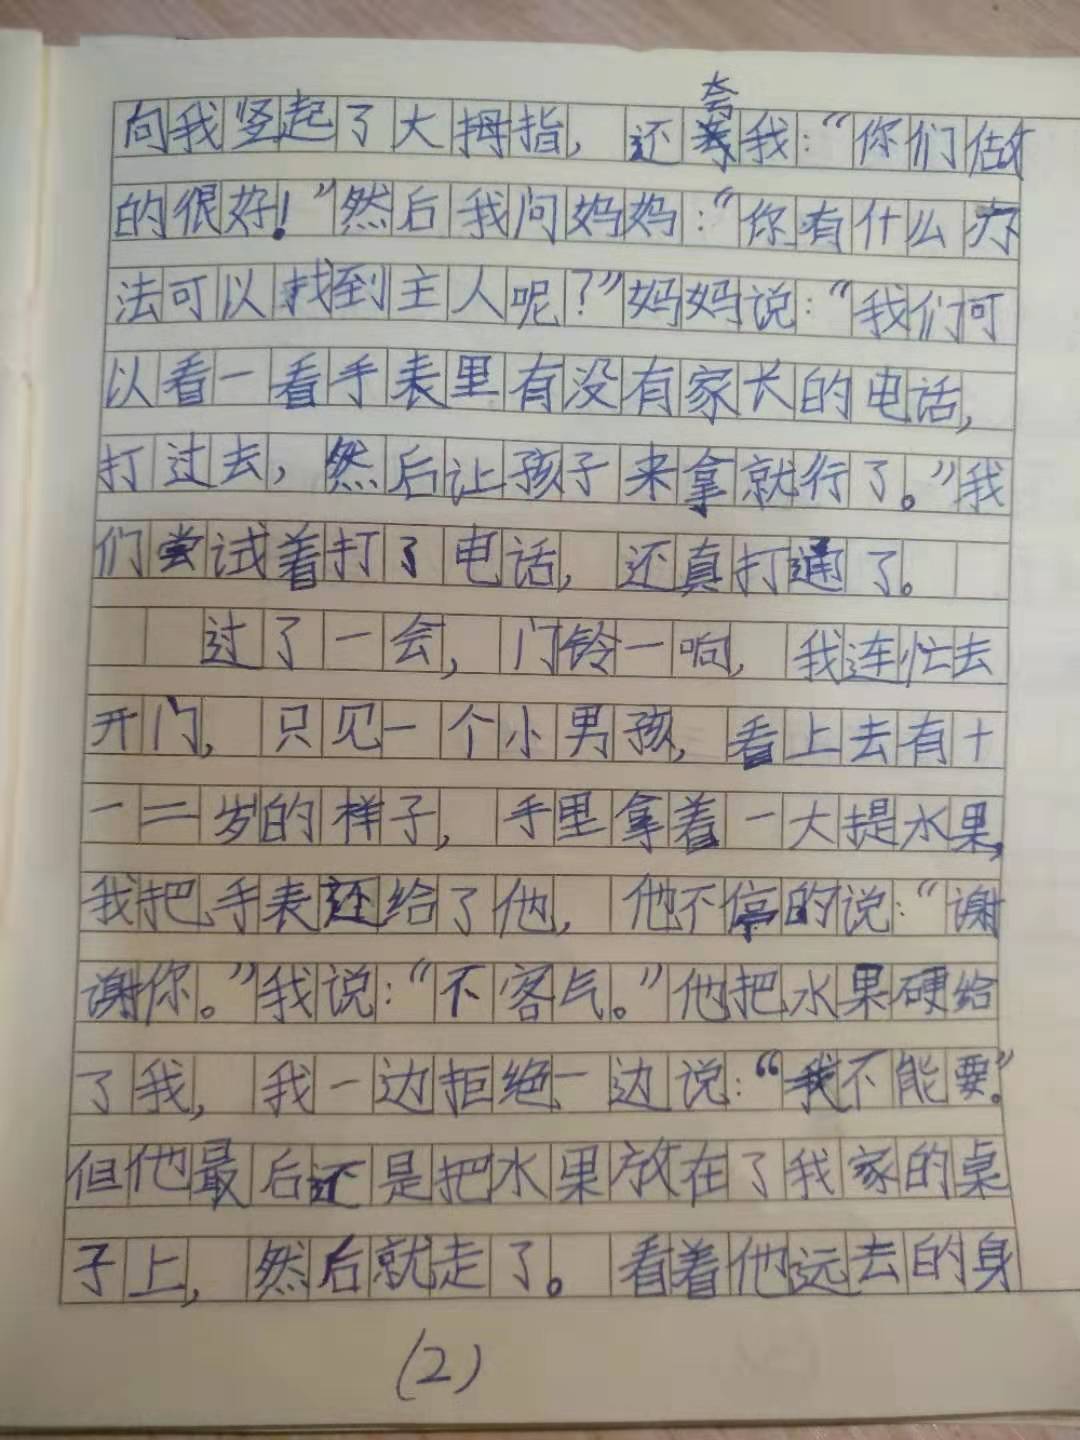 向我竖起了大拇指，还夸我：“你们做
的很好！”然后我问妈妈：“你有什么办
法可以找到主人呢？”妈妈说：“我们可
以看一看手表里有没有家长的电话，
打过去，然后让孩子来拿就行了。”我
们尝试着打了电话，还真打通了。
过了一会，门铃一响，我连忙去
开门，只见一个小男孩，看上去有十
一二岁的样子，手里拿着一大提水果，
我把手表还给了他，他不停的说：“谢
谢你。”我说：“不客气。”他把水果硬给
了我，我一边拒绝一边说：“我不能要。”
但他最后还是把水果放在了我家的桌
子上，然后就走了。看着他远去的身
(2)